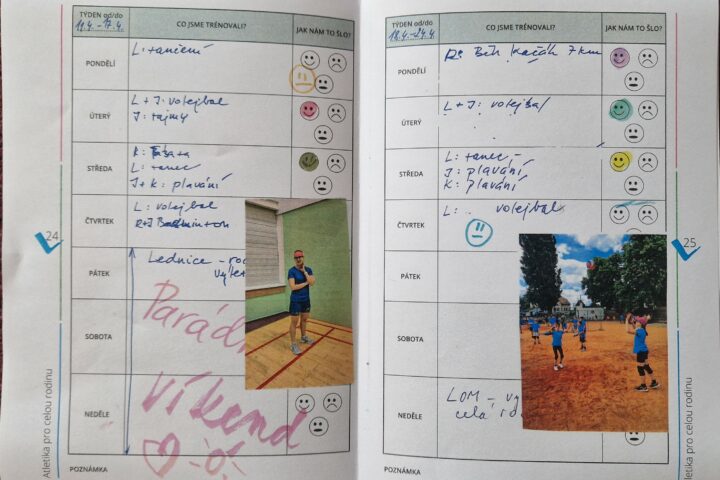 TÝDEN od/do
11.4.-17.4.
CO JSME TRÉNOVALI?
JAK NÁM TO ŠLO?
PONDĚLÍ
L: tancení
ÚTERÝ
L + J: volejbal
J: tajmy
STŘEDA
K:
L: tanec
J+K: plavání
ČTVRTEK
L: volejbal
Badminton
PÁTEK
Lednice -
SOBOTA
Parádní
NEDĚLE
víkend
POZNÁMKA
24
Atletika pro celou rodinu
TÝDEN od/do
18.4.-24.4.
CO JSME TRÉNOVALI?
JAK NÁM TO ŠLO?
PONDĚLÍ
Běh 7 km
ÚTERÝ
L + J: volejbal
STŘEDA
L: tanec -
J: plavání
K: plavání
ČTVRTEK
L: volejbal
PÁTEK
SOBOTA
NEDĚLE
LOM -
celá
POZNÁMKA
25
Atletika pro celou rodinu